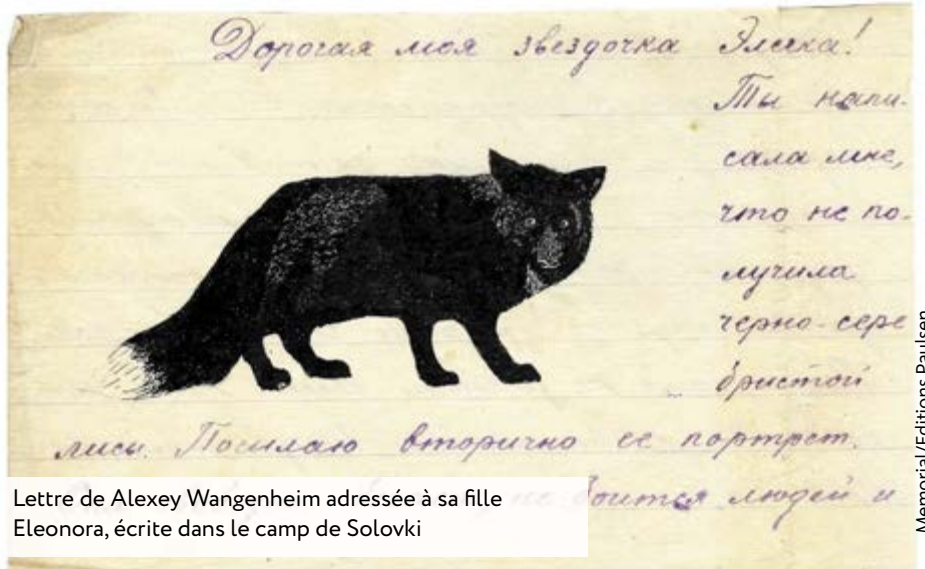 Дорогая моя звездочка Элечка!
Ты напи-
сала мне,
что не по-
лучила
черно-сере
бристой
лисы. Посылаю вторично ее портрет.
не боится людей и
Lettre de Alexey Wangenheim adressée à sa fille
Eleonora, écrite dans le camp de Solovki
Memorial/Editions Paulsen